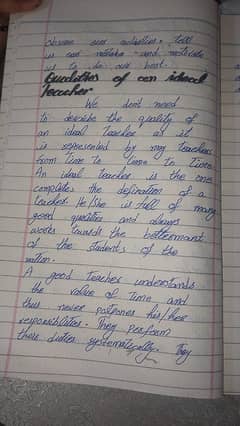 observe our activities, tell
us our mistake and motivate
us to do our best.
Qualities of an ideal
Teacher
We dont need
to describe the quality of
an ideal Teacher as it
is represented by my teachers
from Time to Time to Time
An ideal Teacher is the one
completes the defination of a
teacher. He/She is full of many
good qualities and always
works towards the betterment
of the students of the
nation.
A good Teacher understands
the value of Time and
thus never postpones his/her
responsibilities. They perform
their duties systematically. They